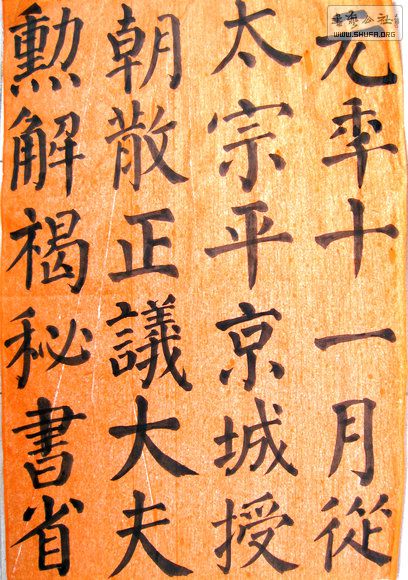 元秊十一月從
太宗平京城授
朝散正議大夫
勳解褐秘書省
公社
WWW.SHUFA.ORG